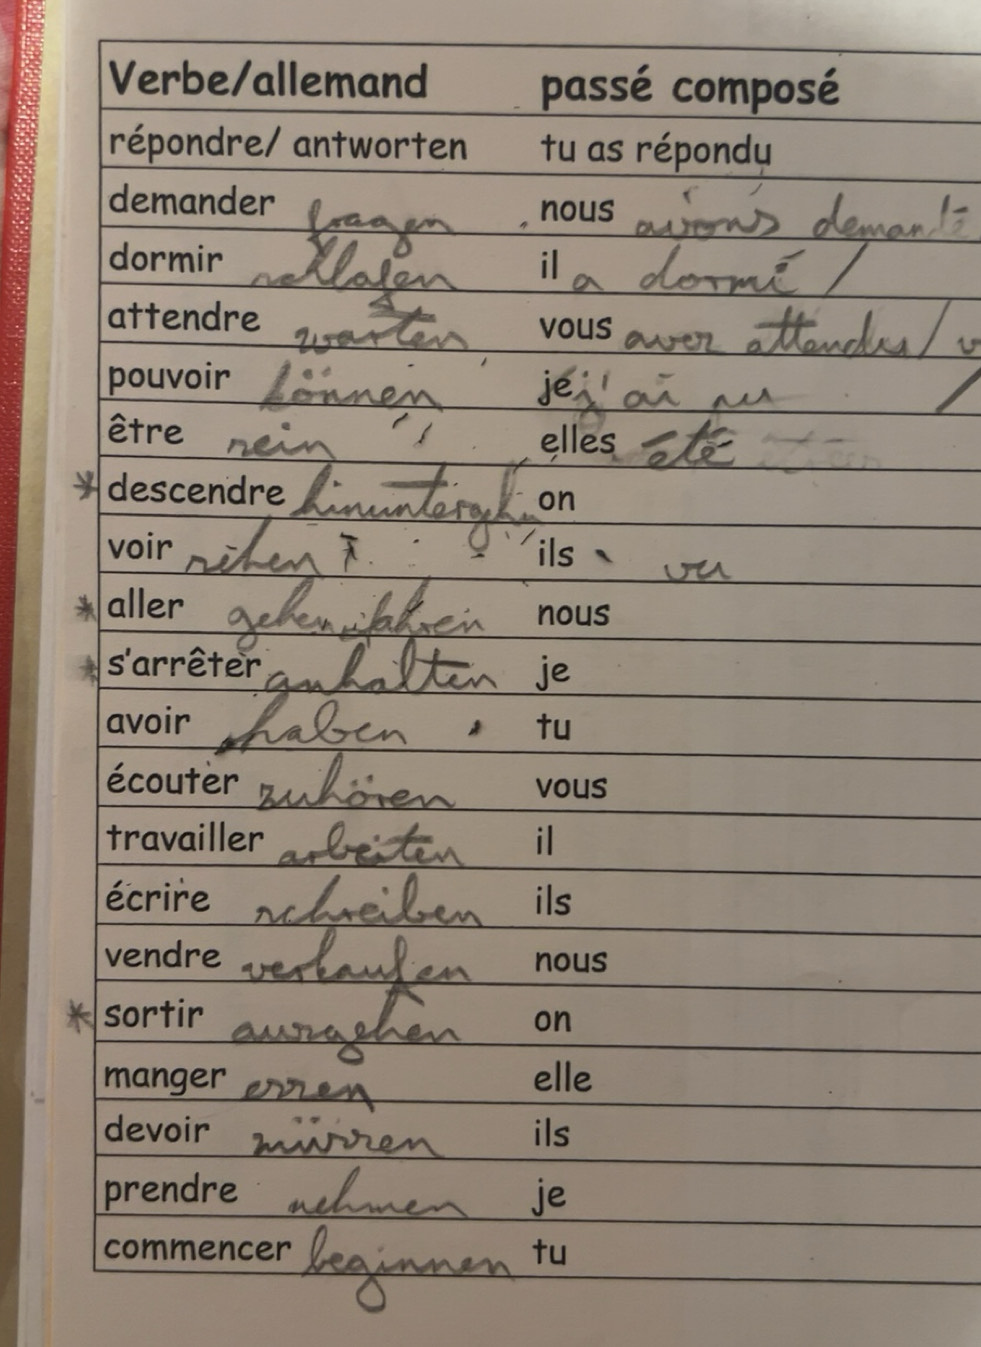 Verbe/allemand passé composé
répondre/ antworten tu as répondu
demander fragen nous avons demandé
dormir schlafen il a dormi /
attendre warten vous avez attendu /
pouvoir können je j'ai pu /
être sein elles été
* descendre on
voir sehen ils vu
* aller gehen, fahren nous
* s'arrêter anhalten je
avoir haben tu
écouter zuhören vous
travailler arbeiten il
écrire schreiben ils
vendre verkaufen nous
* sortir ausgehen on
manger essen elle
devoir müssen ils
prendre nehmen je
commencer beginnen tu